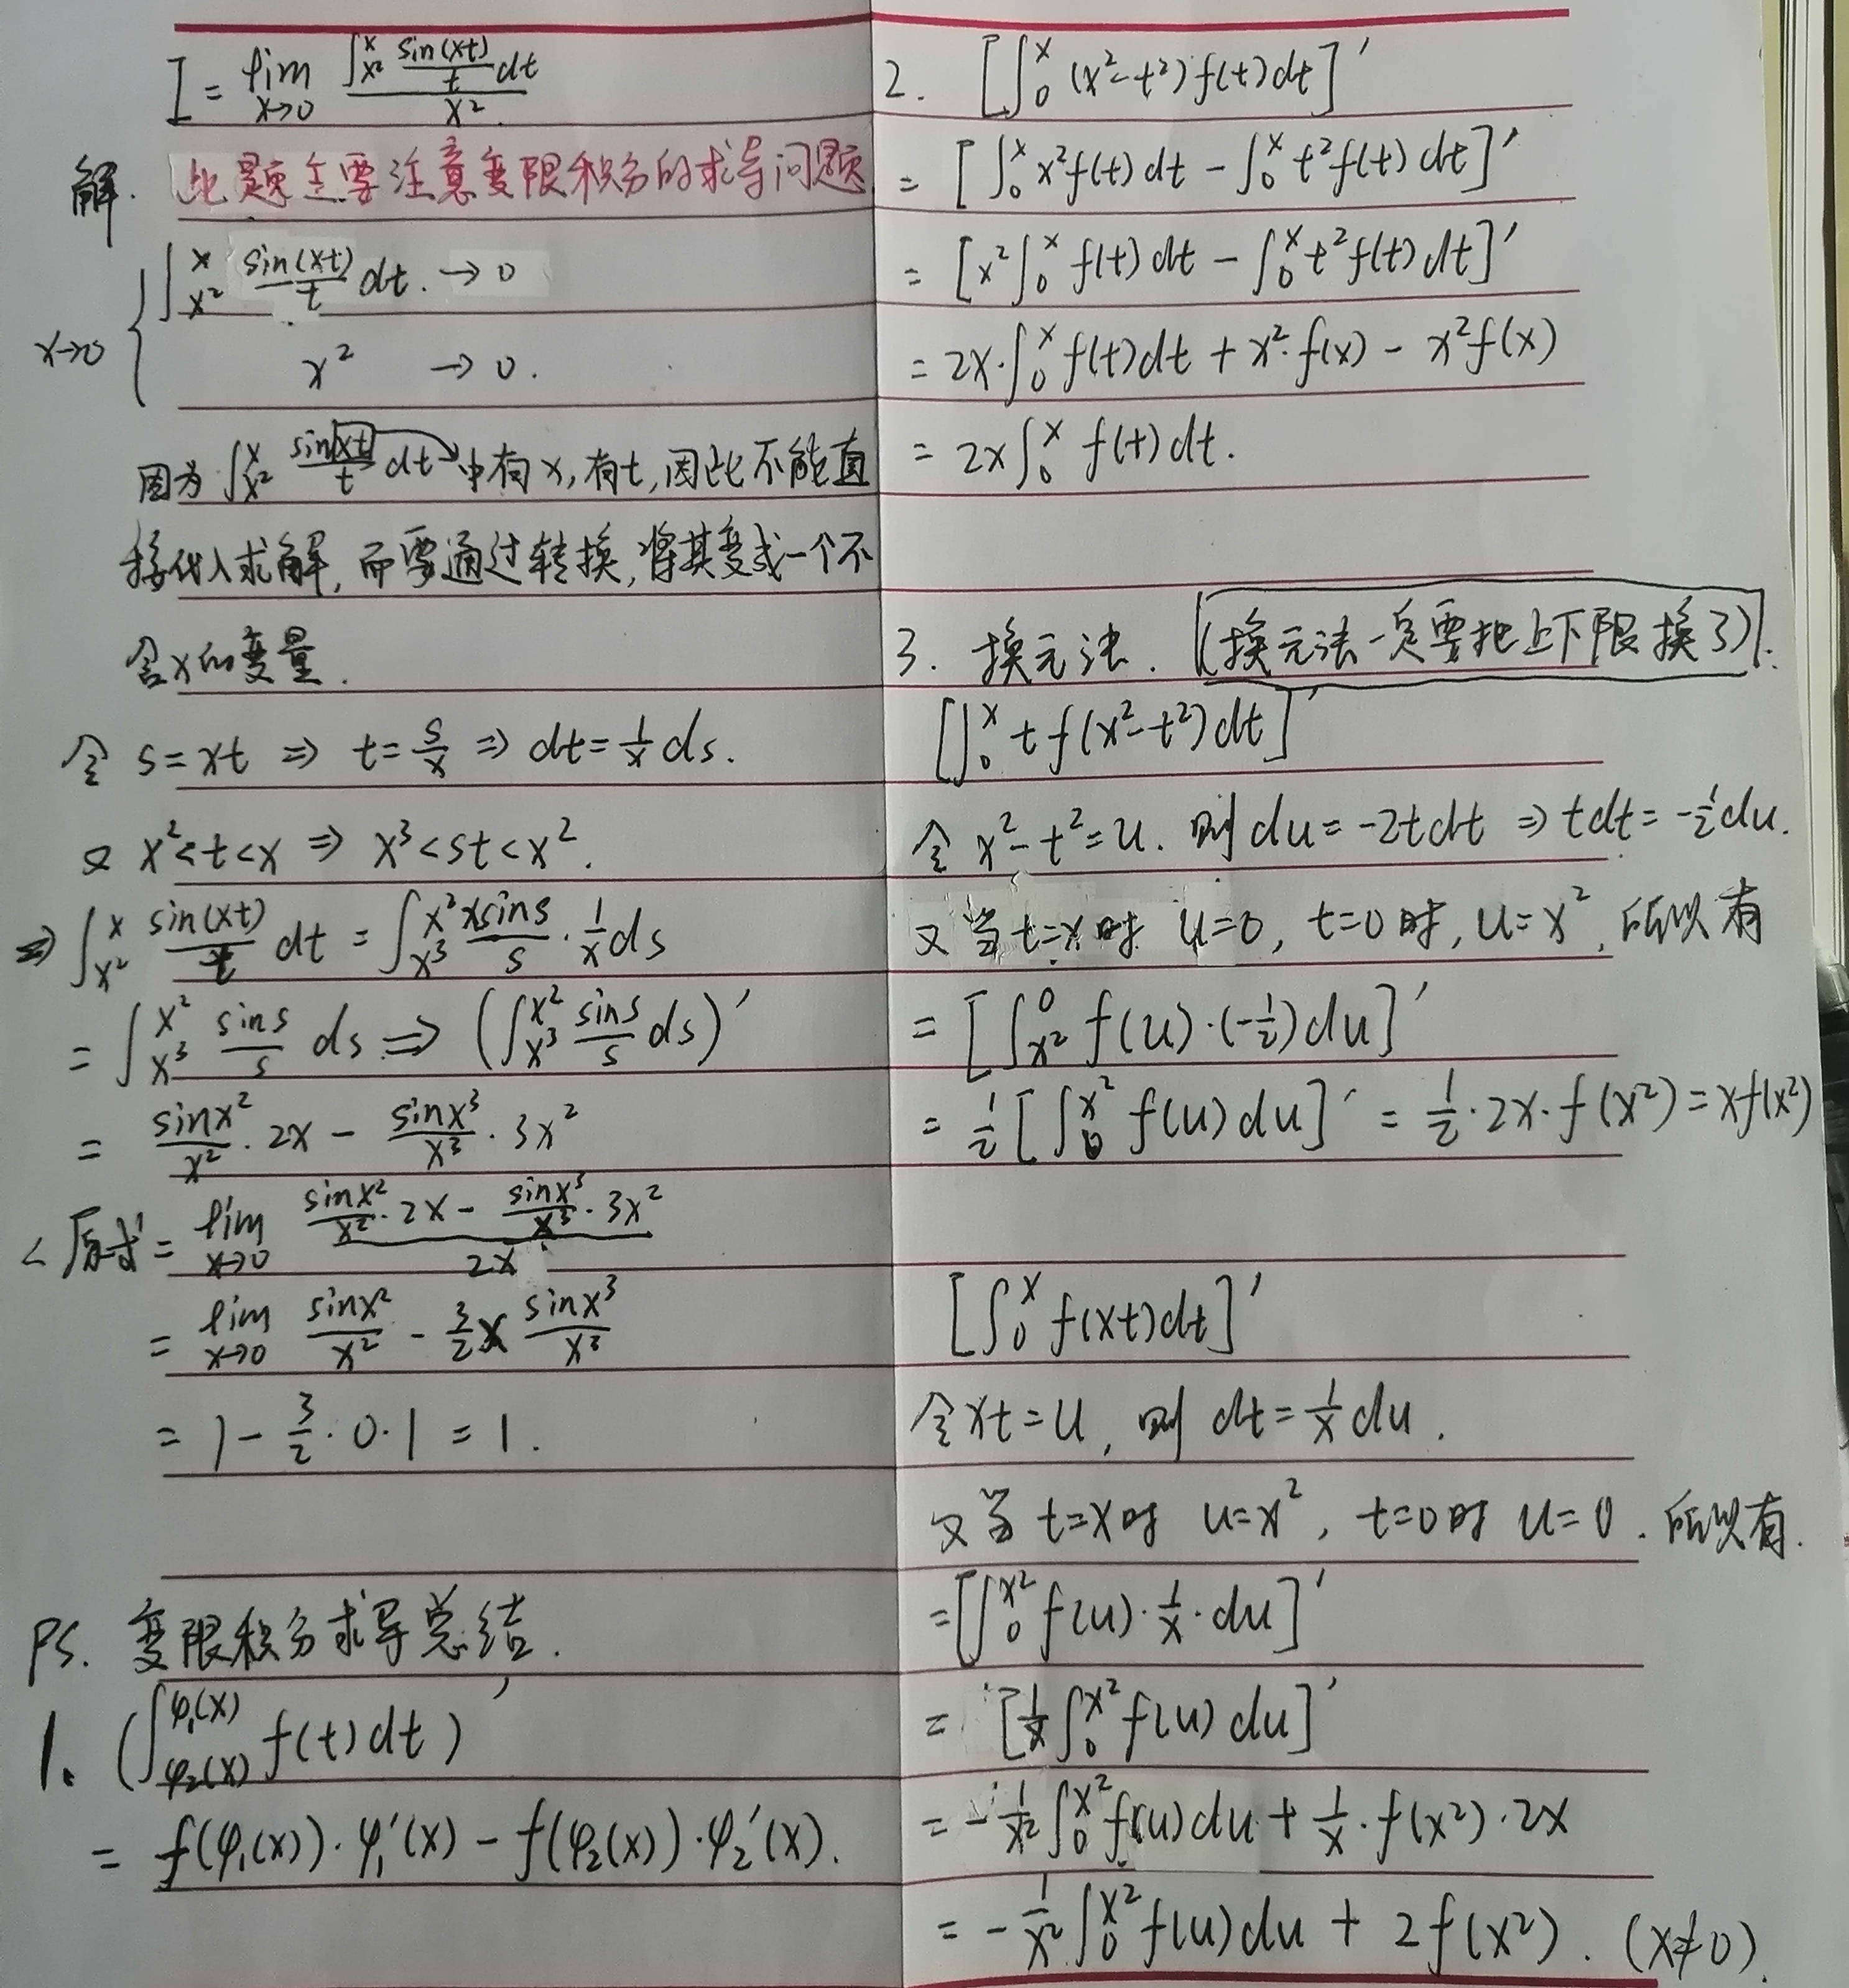 I = lim x→0 ∫_{x²}^{x} sin(xt)/t dt / x²
解. 此题主要注意变限积分的求导问题
x→0 { ∫_{x²}^{x} sin(xt)/t dt. →0
x² →0.
因为 ∫_{x²}^{x} sin(xt)/t dt 中有x,有t,因此不能直
接代入求解,而需通过转换,将其变成一个不
含x的变量.
令 s=xt ⇒ t=s/x ⇒ dt=1/x ds.
又 x²<t<x ⇒ x³<st<x².
⇒ ∫_{x²}^{x} sin(xt)/t dt = ∫_{x³}^{x²} xsins/s · 1/x ds
= ∫_{x³}^{x²} sins/s ds ⇒ (∫_{x³}^{x²} sins/s ds)′
= sinx²/x² · 2x − sinx³/x³ · 3x²
< 原式 = lim x→0 (sinx²/x² · 2x − sinx³/x³ · 3x²) / 2x
= lim x→0 sinx²/x² − 3/2 x sinx³/x³
= 1 − 3/2 · 0 · 1 = 1.
PS. 变限积分求导总结.
1. (∫_{φ₂(x)}^{φ₁(x)} f(t)dt)′
= f(φ₁(x))·φ₁′(x) − f(φ₂(x))·φ₂′(x).
2. [∫_0^x (x²−t²)f(t)dt]′
= [∫_0^x x²f(t)dt − ∫_0^x t²f(t)dt]′
= [x²∫_0^x f(t)dt − ∫_0^x t²f(t)dt]′
= 2x·∫_0^x f(t)dt + x²·f(x) − x²f(x)
= 2x∫_0^x f(t)dt.
3. 换元法. (换元法一定要把上下限换了).
[∫_0^x tf(x²−t²)dt]′
令 x²−t²=u. 则 du=−2tdt ⇒ tdt=−1/2 du.
又当 t=x时 u=0, t=0时, u=x², 所以有
= [∫_{x²}^0 f(u)·(−1/2)du]′
= 1/2 [∫_0^{x²} f(u)du]′ = 1/2 · 2x · f(x²) = xf(x²)
[∫_0^x f(xt)dt]′
令 xt=u, 则 dt=1/x du.
又当 t=x时 u=x², t=0时 u=0. 所以有.
= [∫_0^{x²} f(u)·1/x·du]′
= [1/x ∫_0^{x²} f(u)du]′
= −1/x² ∫_0^{x²} f(u)du + 1/x · f(x²)·2x
= −1/x² ∫_0^{x²} f(u)du + 2f(x²). (x≠0).